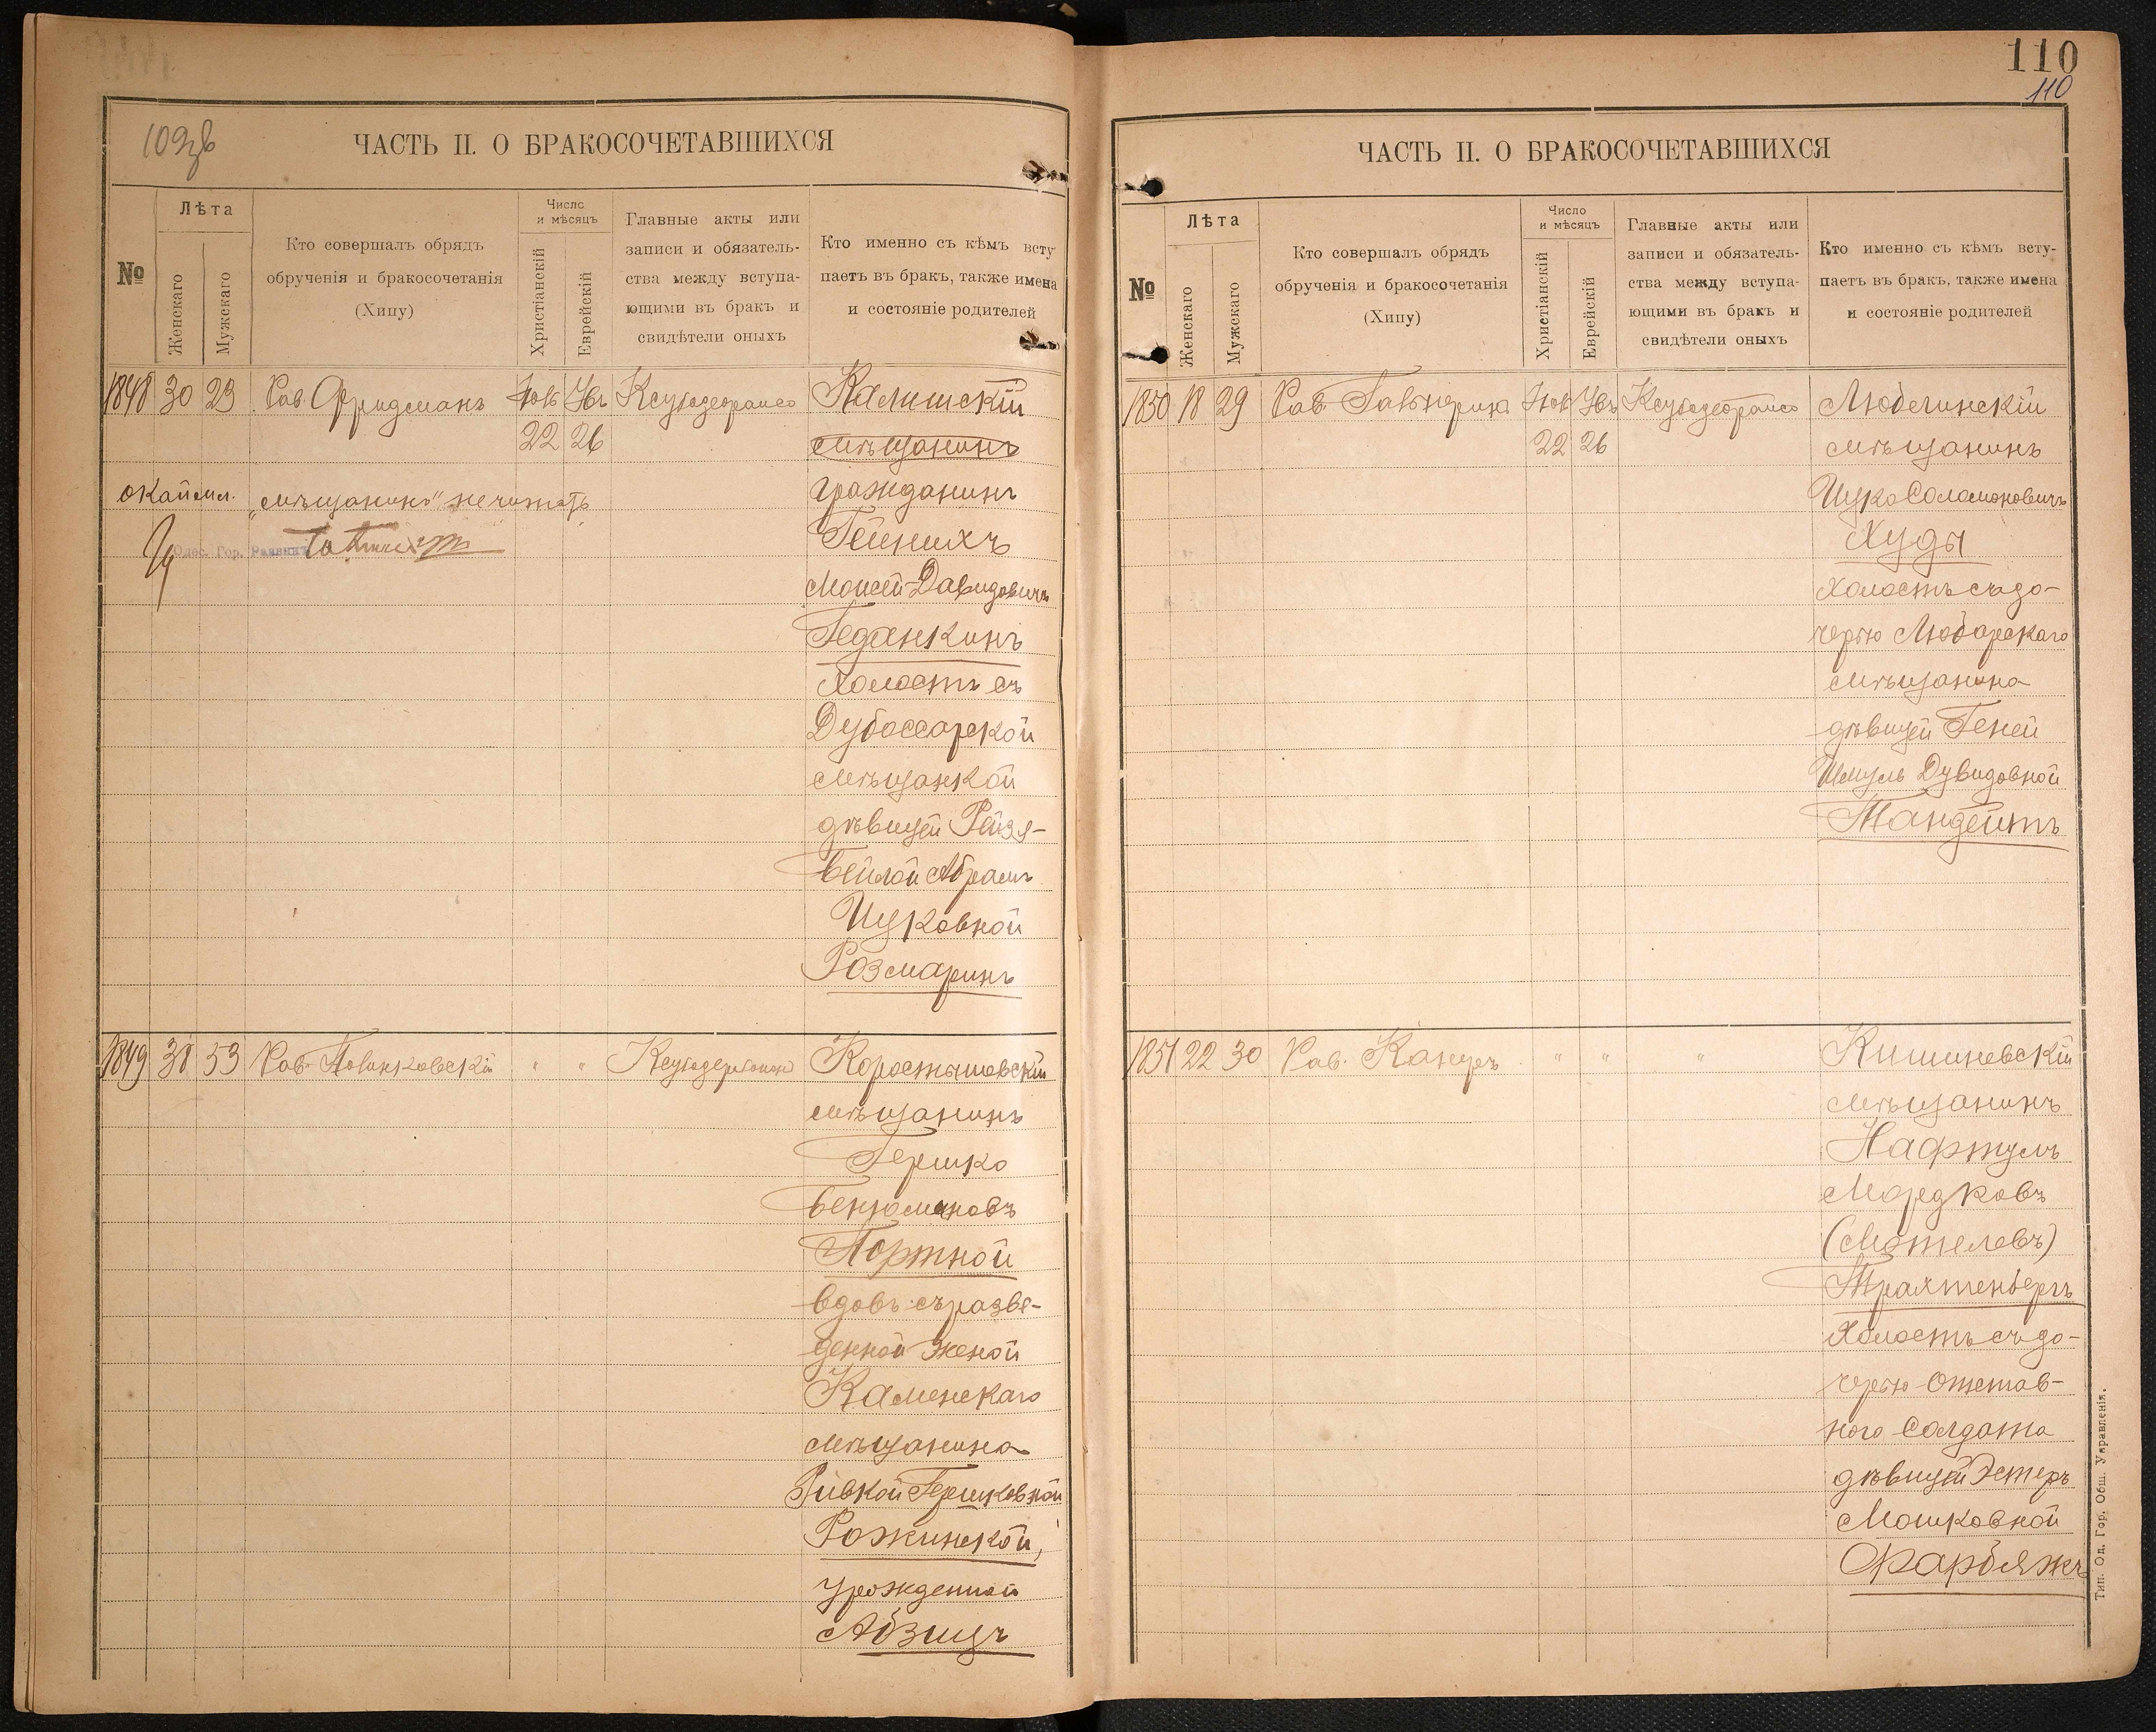 109 об
ЧАСТЬ II. О БРАКОСОЧЕТАВШИХСЯ
№
Лѣта
Женскаго
Мужскаго
Кто совершалъ обрядъ
обрученія и бракосочетанія
(Хипу)
Число
и мѣсяцъ
Христіанскій
Еврейскій
Главные акты или
записи и обязатель-
ства между вступа-
ющими въ бракъ и
свидѣтели оныхъ
Кто именно съ кѣмъ всту
паетъ въ бракъ, также имена
и состояніе родителей
1848 30 23 Рав. Фридманъ Нов Хв Ксубадеораисо Калишскій
22 26 мѣщанинъ
окаймл. „мѣщанинъ" не читать гражданинъ
Одес. Гор. Раввинъ Гейнихъ
Моисей-Давидовичъ
Геданкинъ
холостъ съ
Дубоссарской
мѣщанкой
дѣвицей Рейзя-
Бейлой Абрамъ
Ицковной
Розмаринъ
1849 38 53 Рав. Повинковскій " " Коростышевскій
мѣщанинъ
Гершко
Бенюминовъ
Портной
вдовъ съ разве-
денной женой
Каменскаго
мѣщанина
Ривкой Гершковной
Рожинской,
урожденной
Абзицъ
110
110
ЧАСТЬ II. О БРАКОСОЧЕТАВШИХСЯ
№
Лѣта
Женскаго
Мужскаго
Кто совершалъ обрядъ
обрученія и бракосочетанія
(Хипу)
Число
и мѣсяцъ
Христіанскій
Еврейскій
Главные акты или
записи и обязатель-
ства между вступа-
ющими въ бракъ и
свидѣтели оныхъ
Кто именно съ кѣмъ всту-
паетъ въ бракъ, также имена
и состояніе родителей
1850 18 29 Рав. Нов Хв Ксубадеораисо Любечинскій
22 26 мѣщанинъ
Ицко Соломоновичъ
Худы
холостъ съ до-
черью Любарскаго
мѣщанина
дѣвицей Геней
Шмуль Дувидовной
Тандейтъ
1851 22 30 Рав. Канцръ " " " Кишиневскій
мѣщанинъ
Нафтулъ
Мордковъ
(Мотелевъ)
Трахтенберъ
холостъ съ до-
черью отстав-
ного солдата
дѣвицей Эстеръ
Мошковной
Фарбяжъ
Тип. Од. Гор. Общ. Управленія.